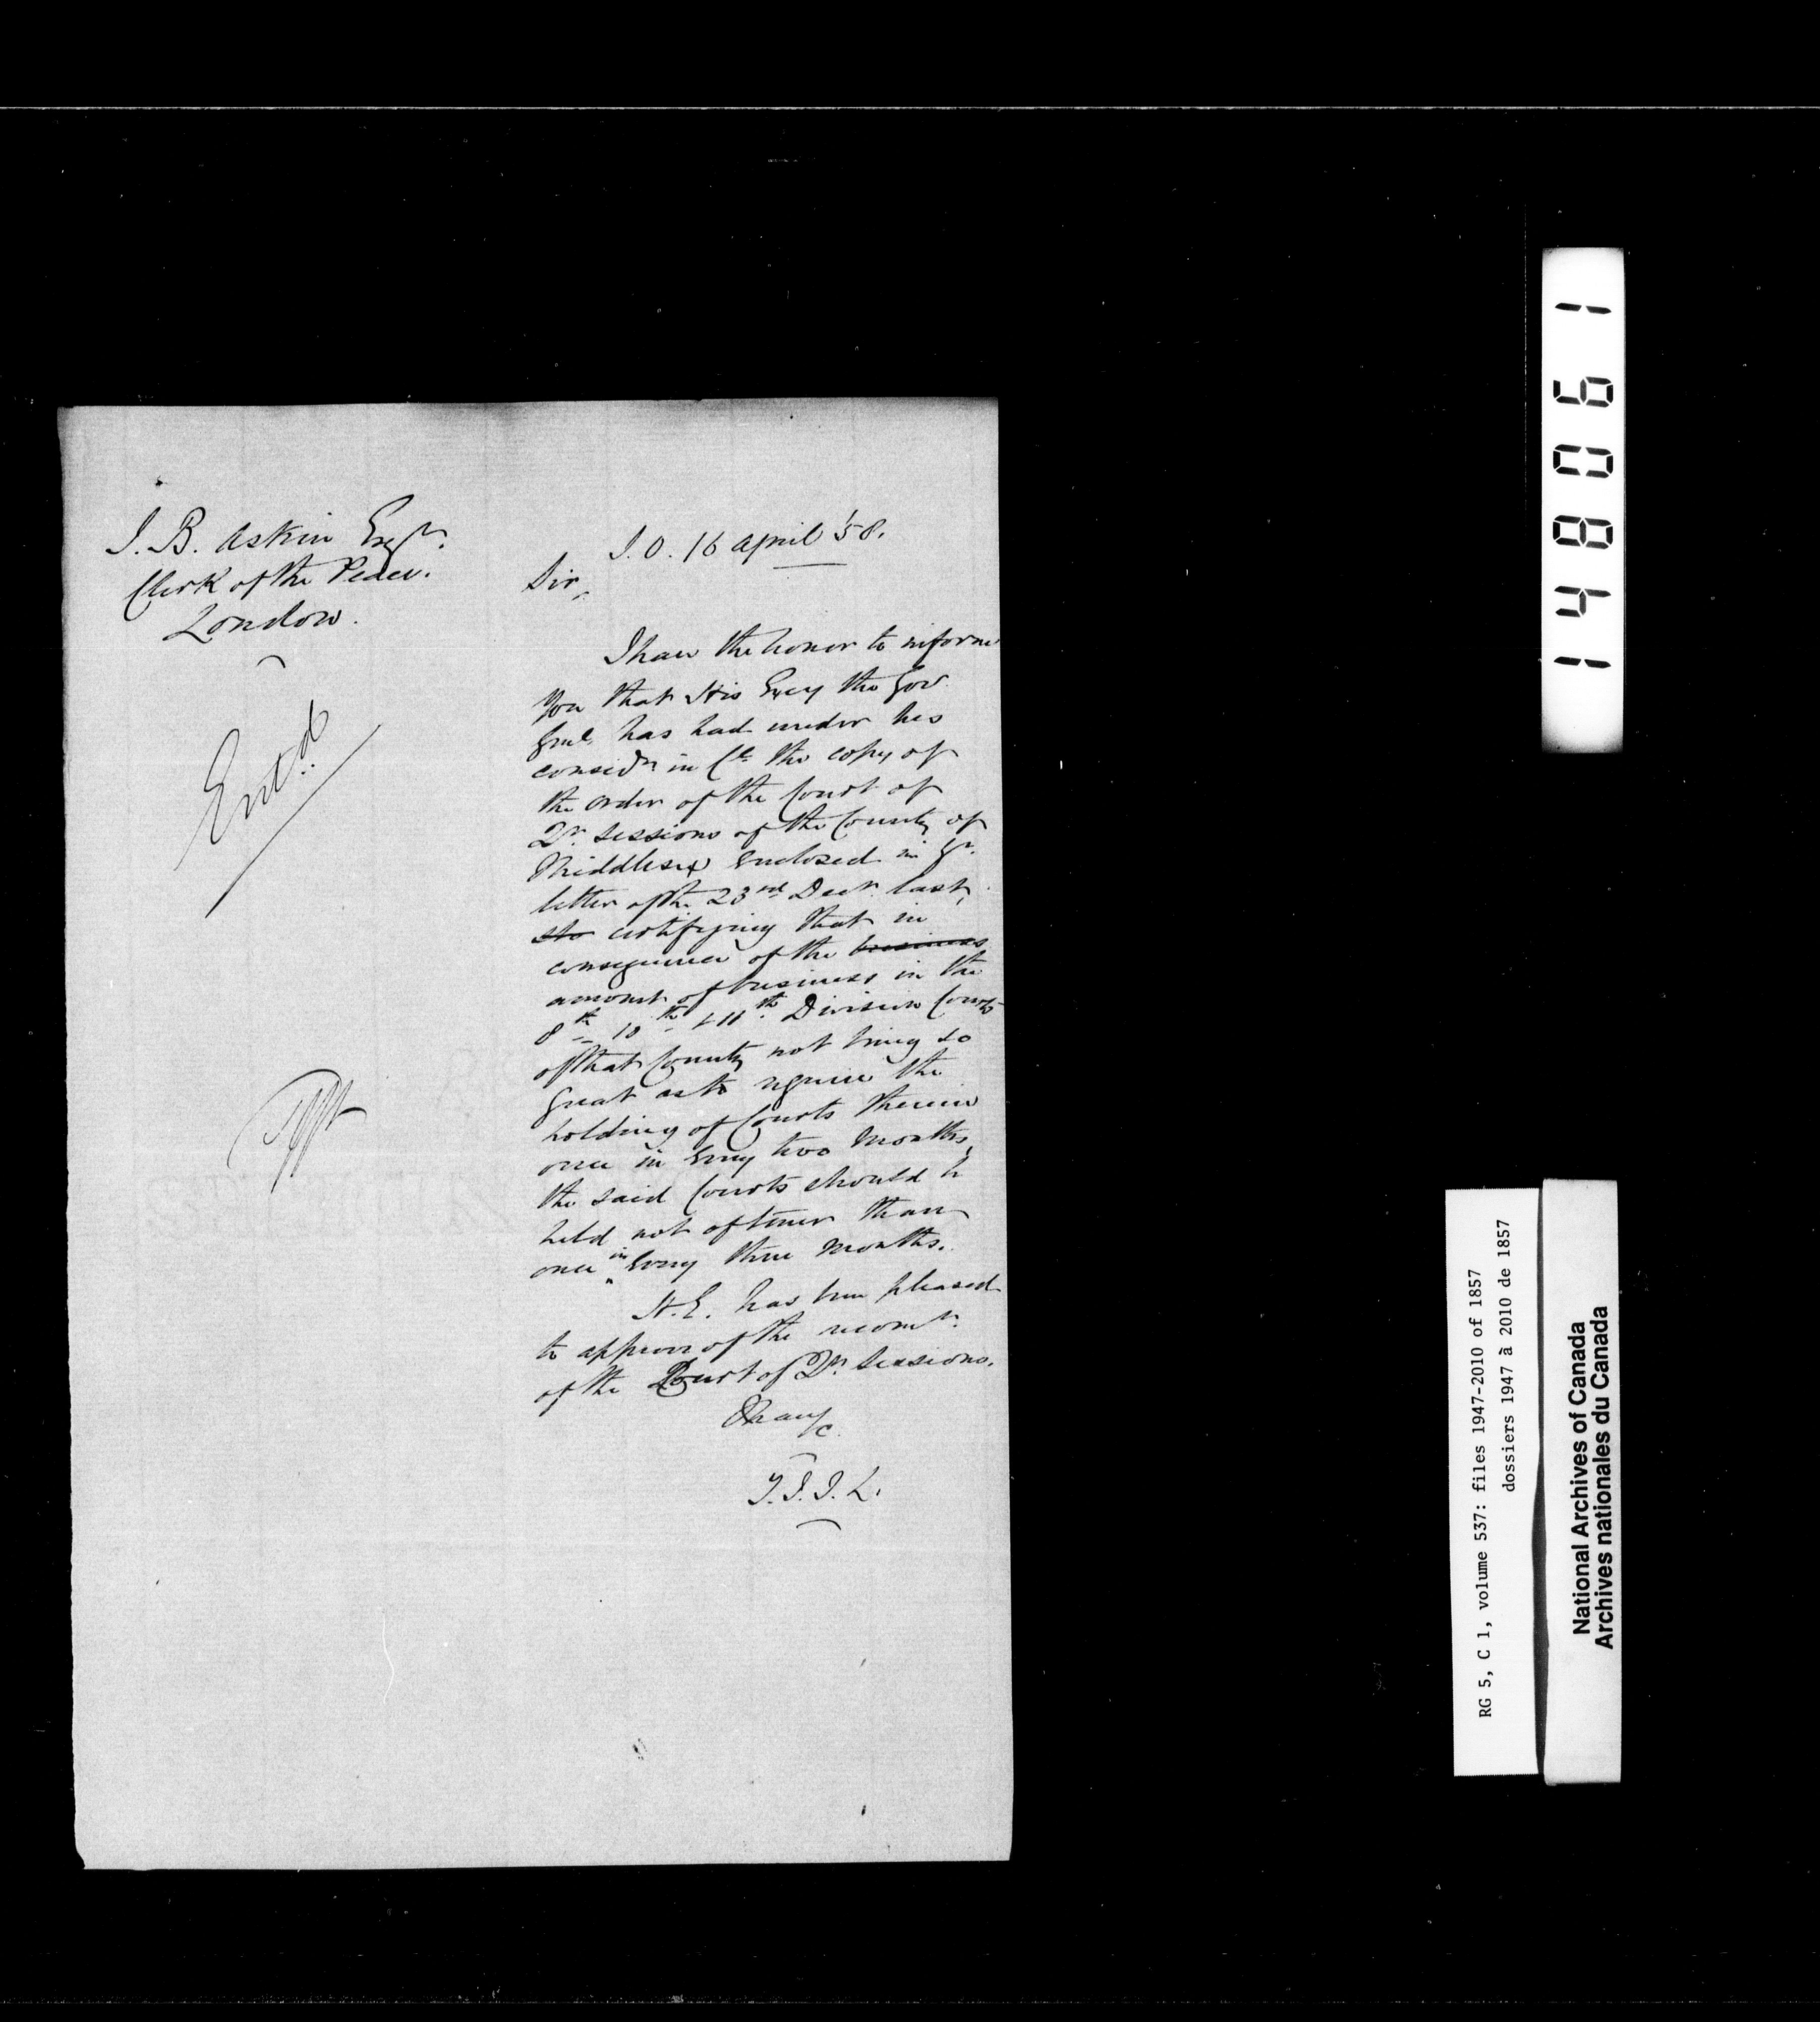 J. B. Askin Esqr.
Clerk of the Peace.
London.
Entd.
S.O. 16 April '58.
Sir,
I have the honor to inform
you that His Excy the Gov
Genl. has had under his
considn in Cl. the copy of
the order of the Court of
Qr. Sessions of the County of
Middlesex enclosed in yr.
letter of the 23rd Decr. last,
certifying that in
consequence of the business
amount of business in the
8th 10th & 11th Division Courts
of that County not being so
great as to require the
holding of Courts therein
once in every two months,
the said Courts should be
held not oftener than
once in every three months.
H.E. has been pleased
to approve of the recomn.
of the Court of Qr. Sessions.
I have &c.
T.J.J.L.
148061
RG 5, C 1, volume 537: files 1947-2010 of 1857
dossiers 1947 à 2010 de 1857
National Archives of Canada
Archives nationales du Canada